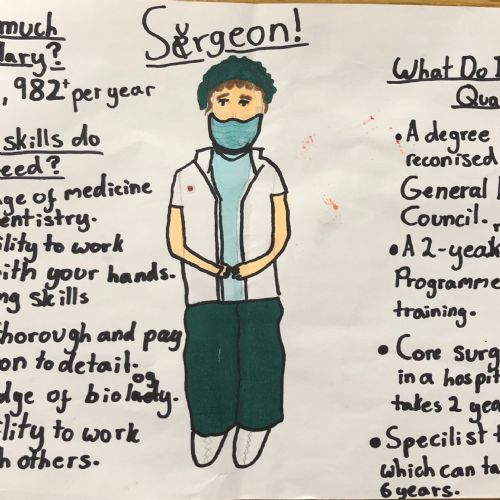 Surgeon!
much
lary?
, 982+ per year
skills do
eed?
ge of medicine
entistry.
ility to work
ith your hands.
ng skills
thorough and pay
on to detail.
dge of biology.
ility to work
h others.
What Do I
Qua
• A degree
reconised
General
Council.
• A 2-yeak
Programme
training.
• Core surg
in a hospit
takes 2 yea
• Specilist t
which can ta
6 years.